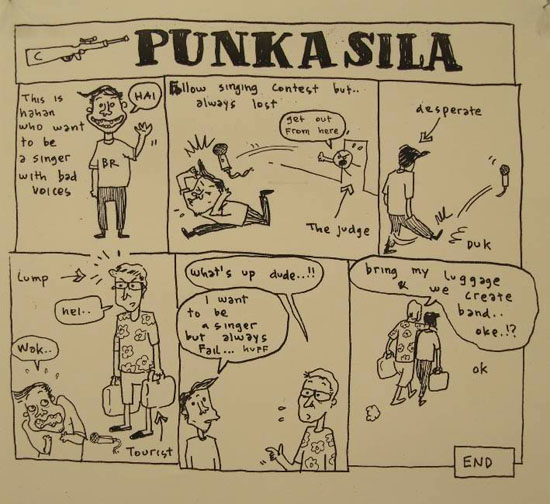 C
PUNKASILA
This is
hahan
who want
to be
a singer
with bad
voices
HAI
BR
Follow singing contest but..
always lost
get out
from here
The judge
desperate
DUK
Lump
hei..
Wak..
Tourist
what's up dude..!!
I want
to be
a singer
but always
Fail... huff
bring my luggage
& we create
band..
oke..!?
ok
END